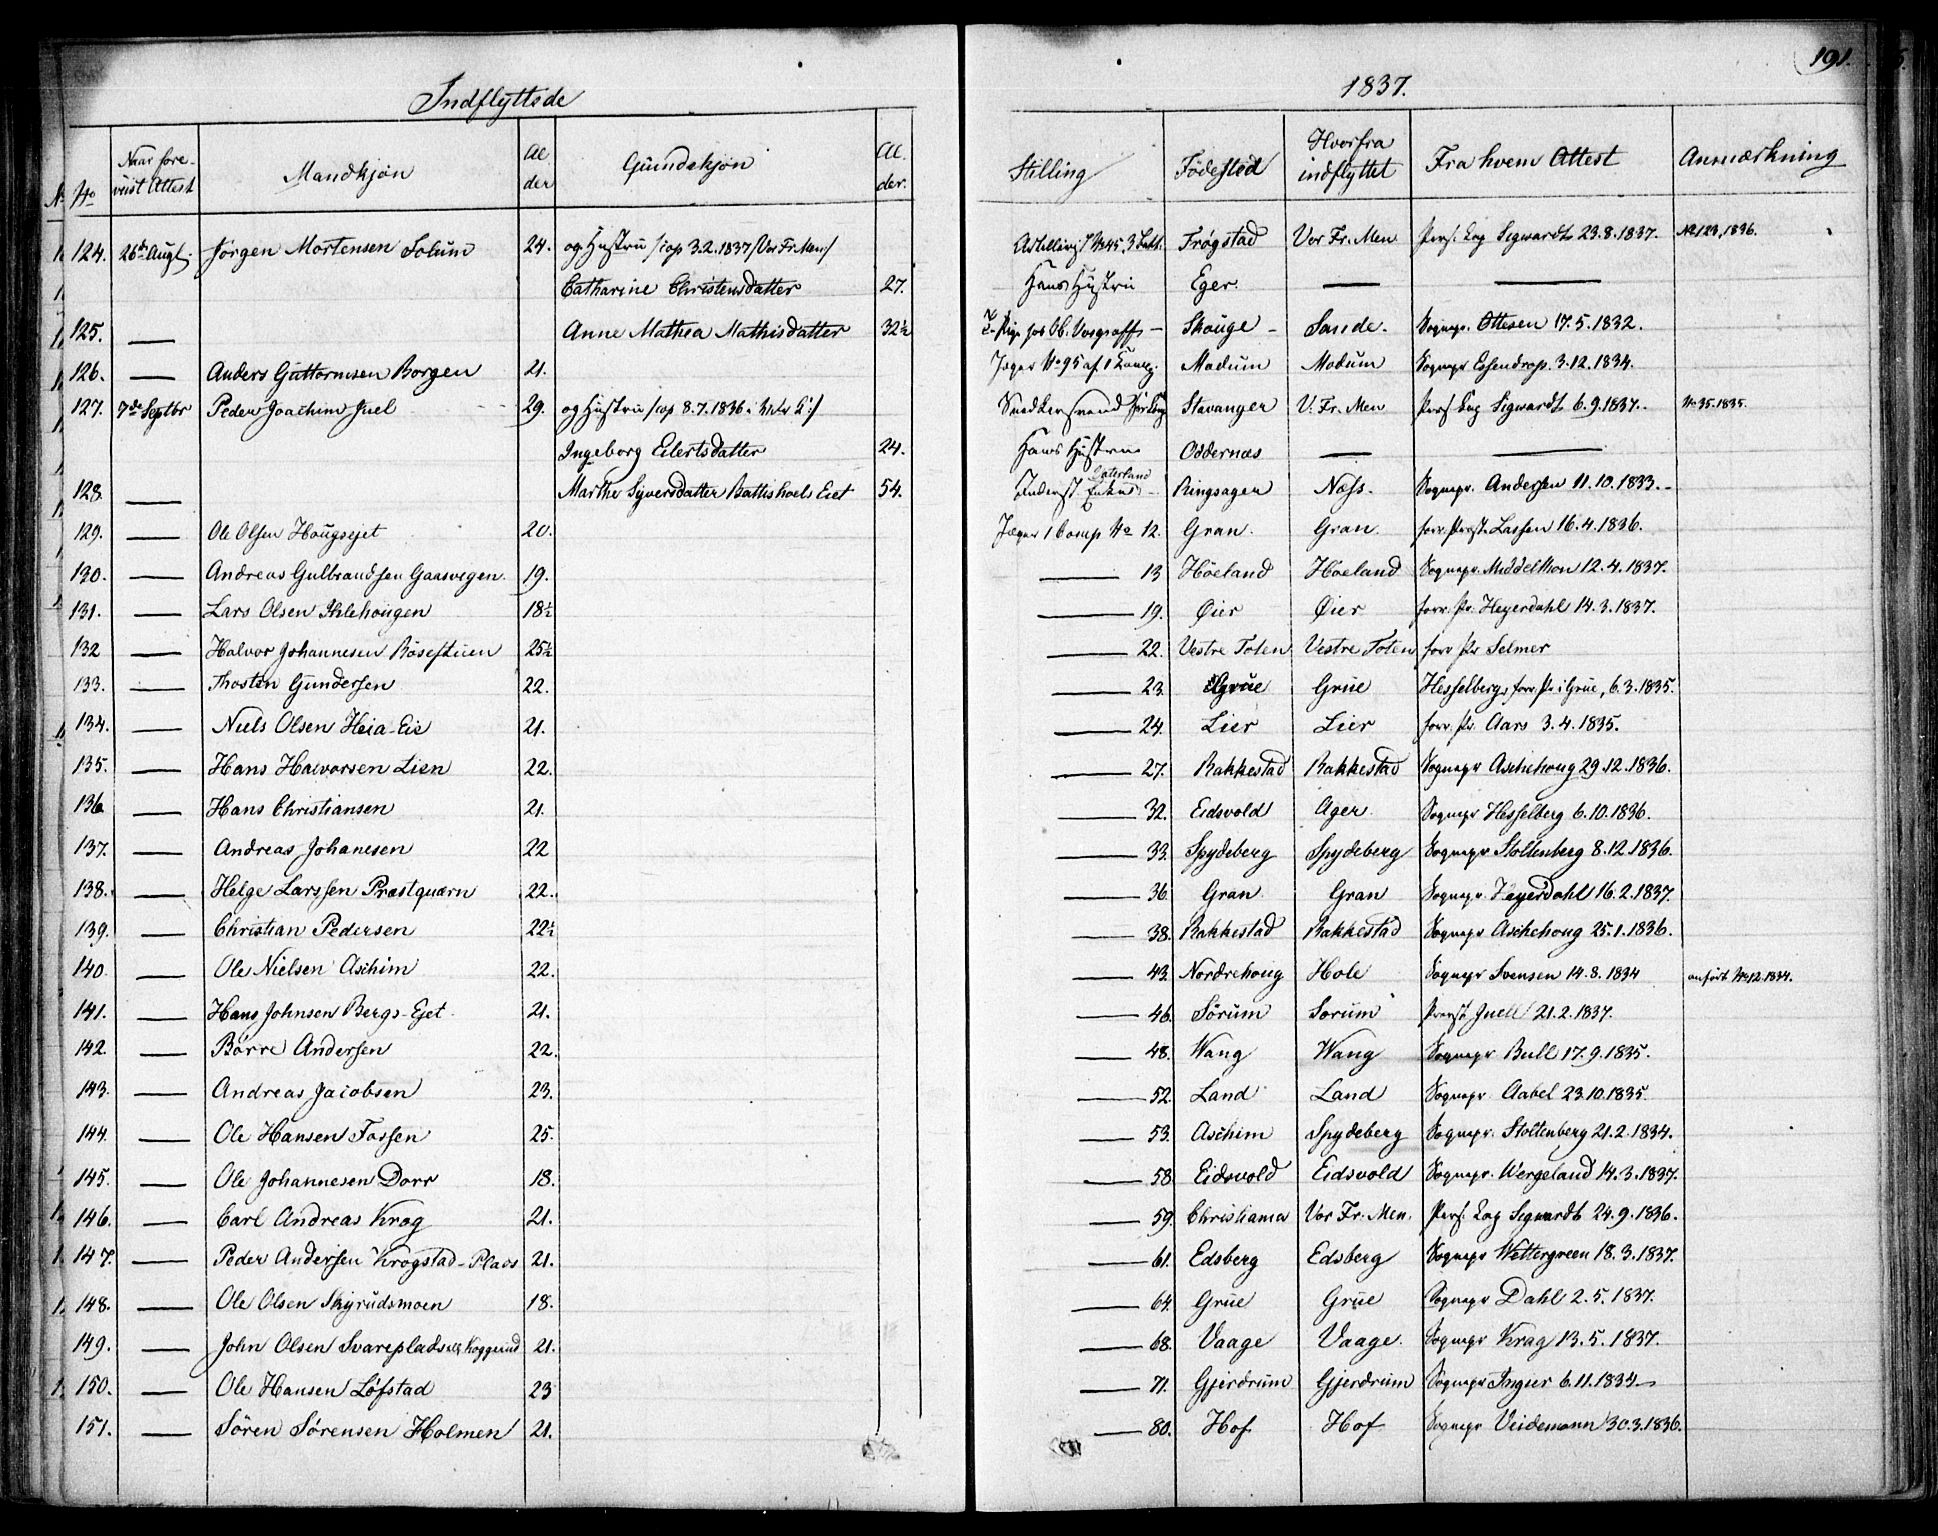 191.
Indflyttsde 1837.
No Naar fore- viist Attest Mandkjøn Al der Qvindekjøn Al. der. Stilling Födested Hvorfra indflyttet Fra hvem Attest Anmærkning
124. 26de Augt. Jørgen Mortensen Solum 24. og Hustru /cop 3.2.1837/Vor Fr. Men/ No 45, 3 Frøgstad Vor Fr. Men Pers. Cap Sigwardt 23.8.1837. No 123, 1836.
Catharine Christensdatter 27. Hans Hustru Eger. — —
125. — Anne Mathea Mathisdatter 32½ Pige hos Skouge - Sande. Sognepr. Ottesen 17.5.1832.
126. — Anders Guttormsen Borgen 21. Jæger No 95 af 1 Comp. Modum Modum Sognepr Essendrop. 3.12.1834.
127. 7de Septbr Peder Joachim Juel 29. og Hustru /cop 8.7.1836 Snedkersvend Stavanger V. Fr. Men Pers Cap Sigwardt 6.9.1837. No 35.1835.
Ingeborg Eilertsdatter 24. Hans Hustru Oddernæs — —
128. — Marthe Syversdatter Battishoels Eiet 54. Inderst Enke Vaterland Ringsager Næss. Sognepr. Andersen 11.10.1833.-
129. — Ole Olsen Hougsejet 20. Jæger 1 Comp No 12. Gran. Gran. forr. Præst Lassen 16.4.1836.
130. — Andreas Gulbrandsen Gaasvegen. 19. — 13 Höeland Höeland Sognepr Middelthon 12.4.1837.
131. — Lars Olsen Ihlehougen 18½ — 19. Øier Øier forr. Pr. Heyerdahl 14.3.1837.
132 — Halvor Johannesen Röisestuen 25½ — 22. Vestre Toten Vestre Toten forr Pr Selmer
133. — Thosten Gundersen 22. — 23 Grue Grue Hesselberg, forr. Pr i Grue, 6.3.1835.
134. — Niels Olsen Heia-Eie 21. — 24. Lier Lier forr. Pr. Aars 3.4.1835.
135. — Hans Halvorsen Lien 22. — 27. Rakkestad Rakkestad Sognepr Aschehoug 29.12.1836.
136 — Hans Christiansen 21. — 32. Eidsvold Ager. Sognepr Hesselberg 6.10.1836.
137. — Andreas Johanesen 22 — 33. Spydeberg Spydeberg Sognepr Stoltenberg 8.12.1836.
138. — Helge Larssen Præstquærn 22. — 36 Gran. Gran Sognepr. Heyerdahl 16.2.1837.
139. — Christian Pedersen 22½ — 38. Rakkestad Rakkestad Sognepr Aschehoug 25.1.1836.
140 — Ole Nielsen Aschim 22. — 43. Nordrehoug Hole Sognepr Svensen 14.8.1834 anført No 12.1834.
141. — Hans Johnsen Bergs-Ejet 21. — 46. Sörum Sorum Præst Juell 21.2.1837.
142. — Börre Andersen 22. — 48. Wang Wang Sognepr Bull 17.9.1835.
143. — Andreas Jacobsen 23. — 52. Land Land Sognepr Aabel 23.10.1835.
144. — Ole Hansen Fossen 25. — 53. Aschim Spydeberg Sognepr. Stoltenberg 21.2.1834.
145. — Ole Johannesen Dorr 18. — 58 Eidsvold Eidsvold Sognepr. Wergeland 14.3.1837.
146. — Carl Andreas Krog 21. — 59. Christiania Vor Fr. Men. Pers. Cap Sigwardt 24.9.1836.
147. — Peder Andersen Krogstad-Plads 21. — 61. Edsberg Edsberg Sognepr Wettergreen 18.3.1837.
148. — Ole Olsen Skyrudsmoen 18. — 64. Grue Grue Sognepr Dahl 2.5.1837.
149. — John Olsen Svareplads 21. — 68. Vaage Vaage. Sognepr Krag 13.5.1837.
150. — Ole Hansen Löfstad 23 — 71. Gjerdrum Gjerdrum Sognepr Ingier 6.11.1834
151. — Sören Sörensen Holmen 21. — 80. Hof Hof Sognepr Veidemann 30.3.1836.